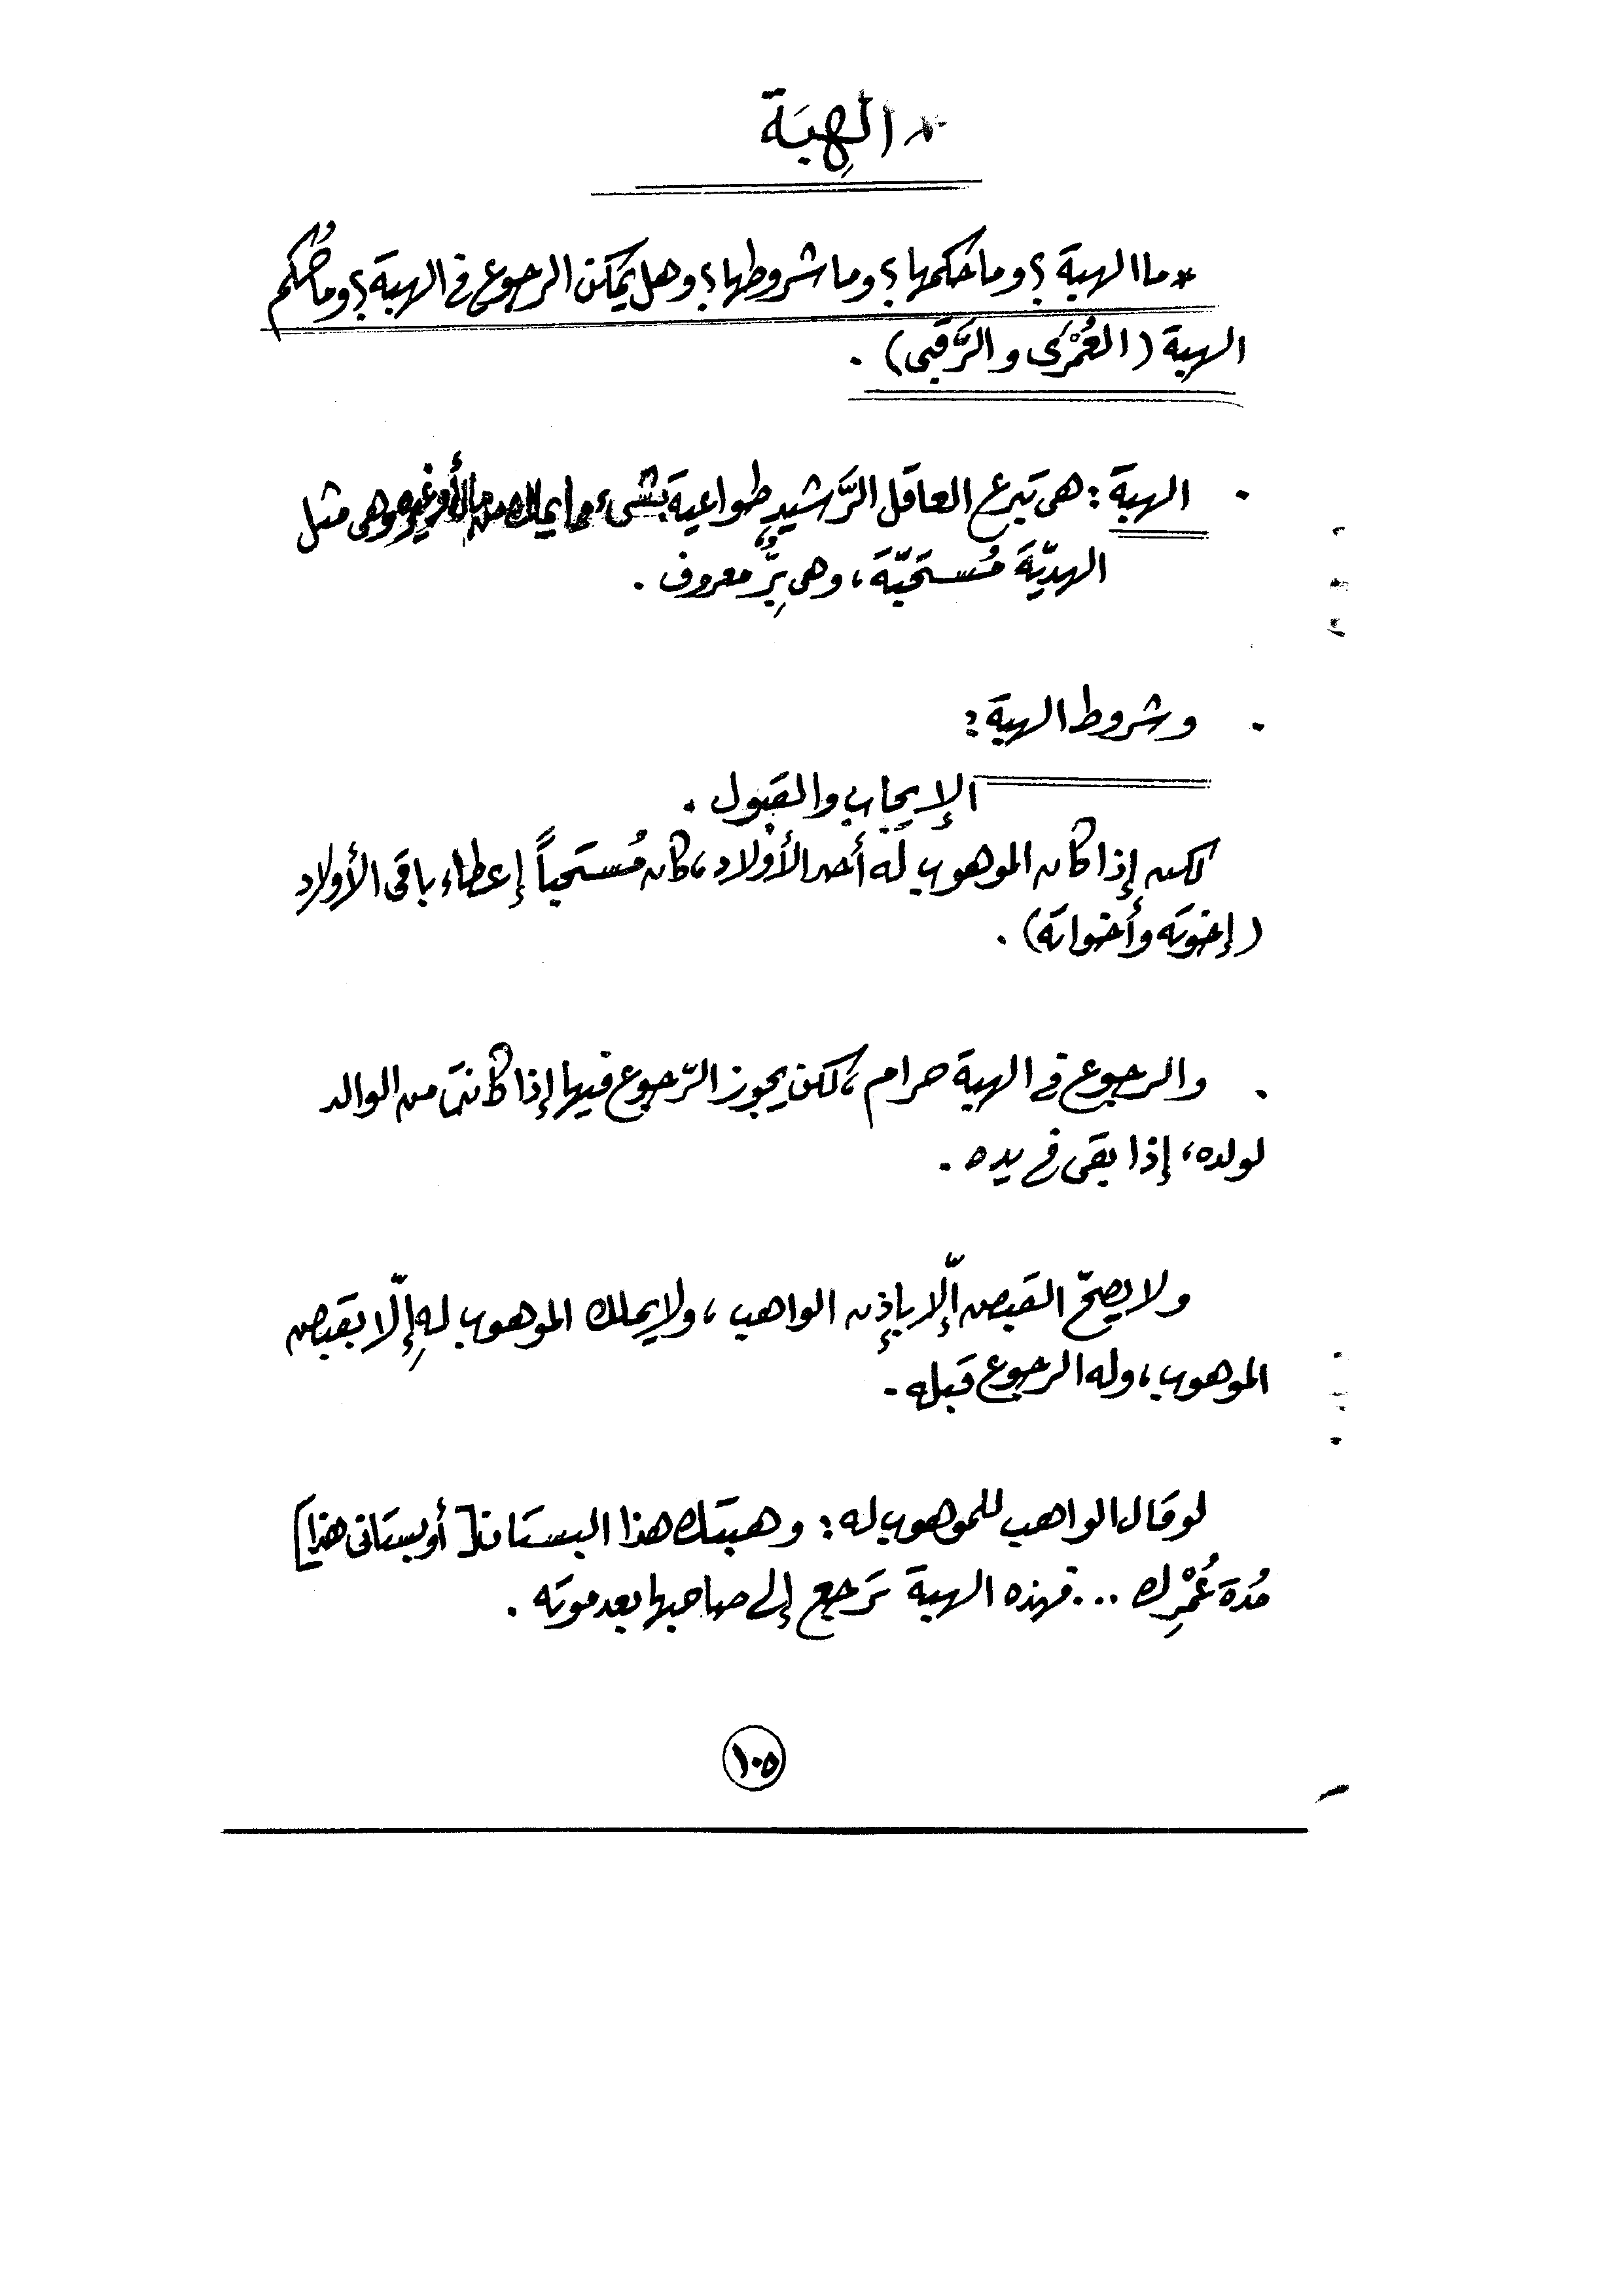 * الهِبَة
* ما الهبة ؟ وما حُكمها ؟ وما شروطها ؟ وهل يمكن الرجوع في الهبة ؟ وما حُكم
الهبة ( العُمْرَى والرَّقبى ) .
. الهبة : هى تبرع العاقل الرَّشيدِ طواعية بشىء مما يملك من مال أو غيره وهى مثل
الهديّة مُستحَبّة ، وهى بِرٌّ معروف .
. وشروط الهبة :
الإيجاب والقبول .
لكن إذا كان الموهوب له أحد الأولاد ، كان مُستحباً إعطاء باقى الأولاد
( إخوته وأخواته ) .
. والرجوع في الهبة حرام ، لكن يجوز الرّجوع فيها إذا كانت من الوالد
لولده ، إذا بقى في يده .
ولا يصحّ القبض إلّا بإذن الواهب ، ولا يملك الموهوب لهِ إلّا بقبض
الموهوب ، وله الرجوع قبله .
لو قال الواهب للموهوب له : وهبتك هذا البستان [ أو بستانى هذا ]
مُدة عُمْرِك ... فهذه الهبة تَرجع إلى صاحبها بعد موته .
١٠٥